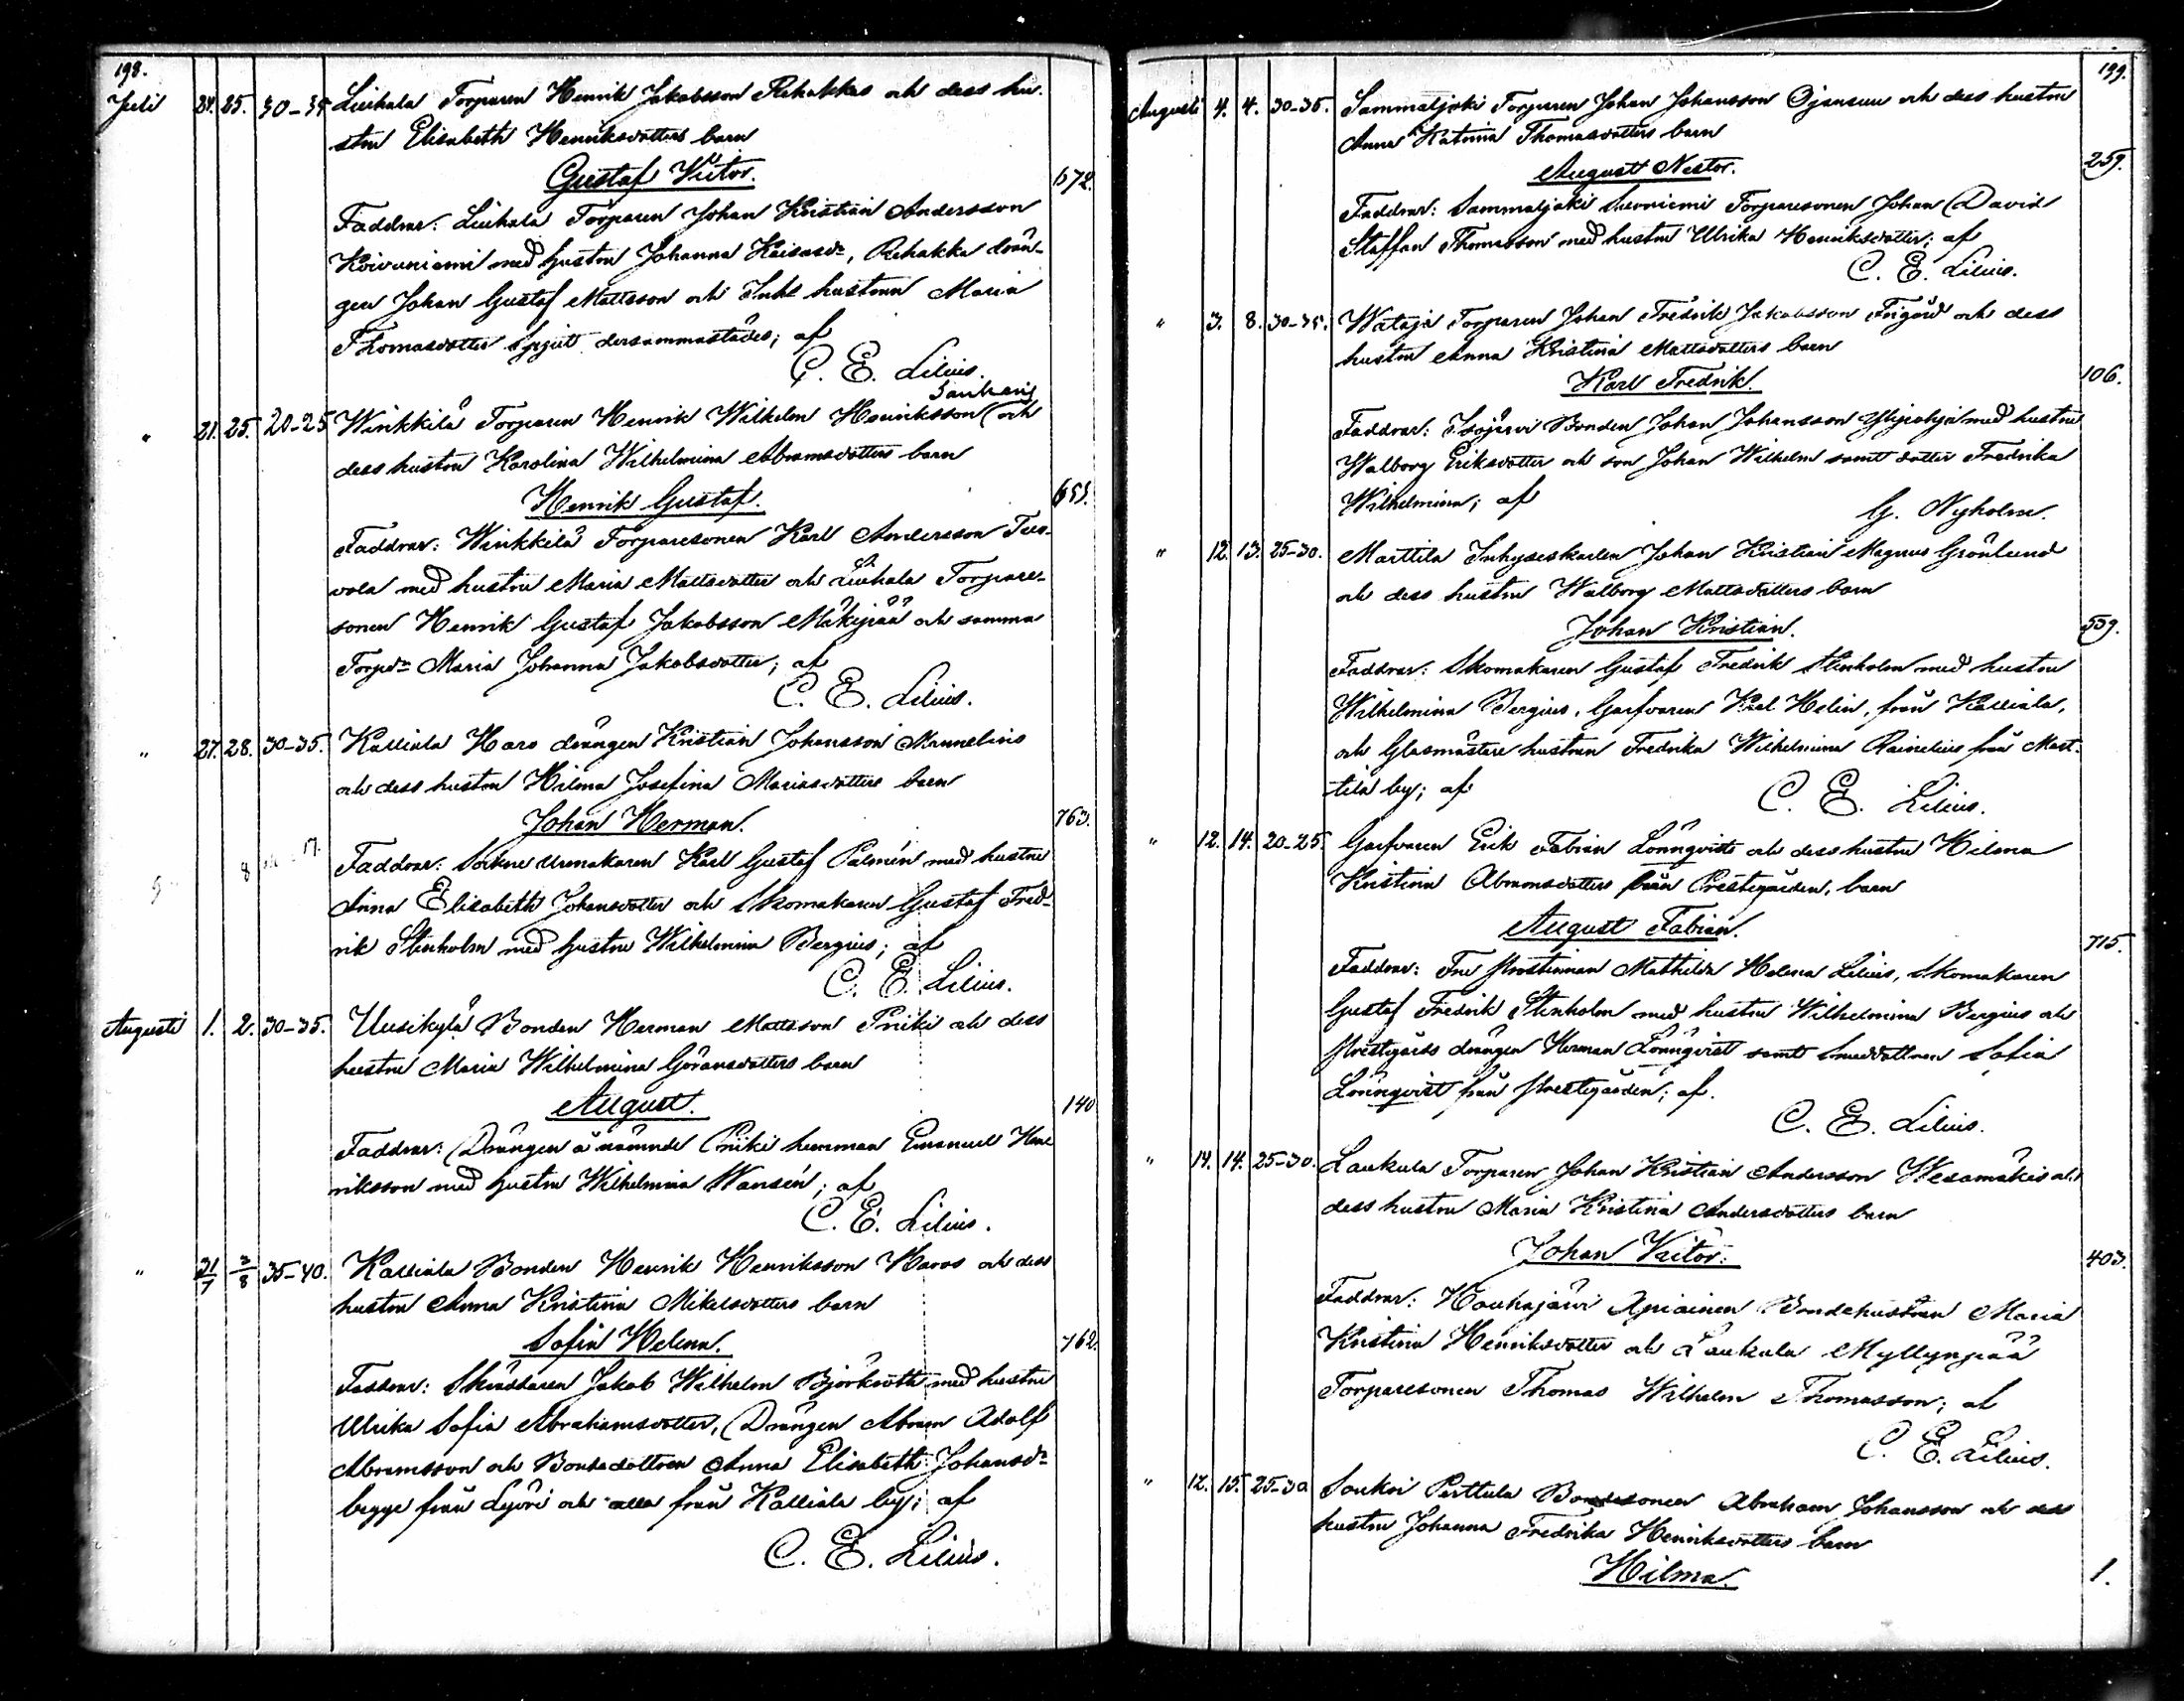 198.
Juli 24. 25. 30-35 Liuhala Torparen Henrik Jakobsson Rihakkas och dess hu-
stru Elisabeth Henriksdotters barn
Gustaf Victor. 672.
Faddrar: Liuhala Torparen Johan Kristian Andersson
Koivuniemi med hustru Johanna Kaisasdr, Rihakka drän-
gen Johan Gustaf Mattsson och Inhs hustrun Maria
Thomasdotter Spjut dersammastädes; af
C. E. Lilius.
Sauhari
" 21. 25. 20-25 Winkkilä Torparen Henrik Wilhelm Henriksson (och
dess hustru Karolina Wilhelmina Abramsdotters barn
Henrik Gustaf. 655.
Faddrar: Winkkilä Torparesonen Karl Andersson Tuo-
vola med hustru Maria Mattsdotter och Liuhala Torpare-
sonen Henrik Gustaf Jakobsson Mäkipää och samma
Torpdr Maria Johanna Jakobsdotter; af
C. E. Lilius.
" 27. 28. 30-35. Kalliala Haro drängen Kristian Johansson Mannelius
och dess hustru Hilma Josefina Mariasdotters barn
Johan Herman. 763.
Faddrar: Sockne urmakaren Karl Gustaf Palmén med hustru
Anna Elisabeth Johansdotter och Skomakaren Gustaf Fred-
rik Stenholm med hustru Wilhelmina Bergius; af
C. E. Lilius.
Augusti 1. 2. 30-35. Uusikylä Bonden Herman Mattsson Priiki och dess
hustru Maria Wilhelmina Göransdotters barn
August. 140
Faddrar: Drängen å nämnde Priiki hemman Emanuel Hen-
riksson med hustru Wilhelmina Wansén; af
C. E. Lilius.
" 31/7 2/8 35-40. Kalliala Bonden Henrik Henriksson Haros och dess
hustru Anna Kristina Mikelsdotters barn
Sofia Helena. 762.
Faddrar: Skräddaren Jakob Wilhelm Björkroth med hustru
Ulrika Sofia Abrahamsdotter, Drängen Abram Adolf
Abramsson och Bondedottren Anna Elisabeth Johansdr
begge från Lyöri och alla från Kalliala by; af
C. E. Lilius.
199.
Augusti 4. 4. 30-35. Sammaljoki Torparen Johan Johansson Ojansuu och dess hustru
Anna Katrina Thomasdotters barn
August Nestor. 259.
Faddrar: Sammaljoki Savoniemi Torparesonen Johan David
Staffan Thomasson med hustru Ulrika Henriksdotter; af
C. E. Lilius.
" 3. 8. 30-35. Wataja Torparen Johan Fredrik Jakobsson Frigård och dess
hustru Anna Kristina Mattsdotters barn
Karl Fredrik. 106.
Faddrar: Isojärvi Bonden Johan Johansson Ylipohja med hustru
Walborg Eriksdotter och son Johan Wilhelm samt dotter Fredrika
Wilhelmina; af
G. Nyholm.
" 12. 13. 25-30. Marttila Inhyseskarlen Johan Kristian Magnus Grönlund
och dess hustru Walborg Mattsdotters barn
Johan Kristian. 559.
Faddrar: Skomakaren Gustaf Fredrik Stenholm med hustru
Wilhelmina Bergius, Garfvaren Karl Helin, från Kalliala,
och Glasmästare hustrun Fredrika Wilhelmina Rainelius från Mart-
tila by; af
C. E. Lilius.
" 12. 14. 20-25. Garfvaren Erik Fabian Lönnqvists och dess hustru Hilma
Kristina Abramsdotters från Prestegården, barn
August Fabian. 715.
Faddrar: Fru Prostinnan Mathilda Helena Lilius, Skomakaren
Gustaf Fredrik Stenholm med hustru Wilhelmina Bergius och
Prestegårds drängen Herman Lönnqvist samt Smeddottren Sofia
Lönnqvist från Prestegården; af.
C. E. Lilius.
" 14. 14. 25-30. Laukula Torparen Johan Kristian Andersson Wesamäkis och
dess hustru Maria Kristina Andersdotters barn
Johan Victor. 403.
Faddrar: Houhajärvi Äpiäinen Bondehustrun Maria
Kristina Henriksdotter och Laukula Myllynpää
Torparesonen Thomas Wilhelm Thomasson; af
C. E. Lilius.
" 12. 15. 25-30 Soukoi Perttula Bondesonen Abraham Johansson och dess
hustru Johanna Fredrika Henriksdotters barn
Hilma. 1.